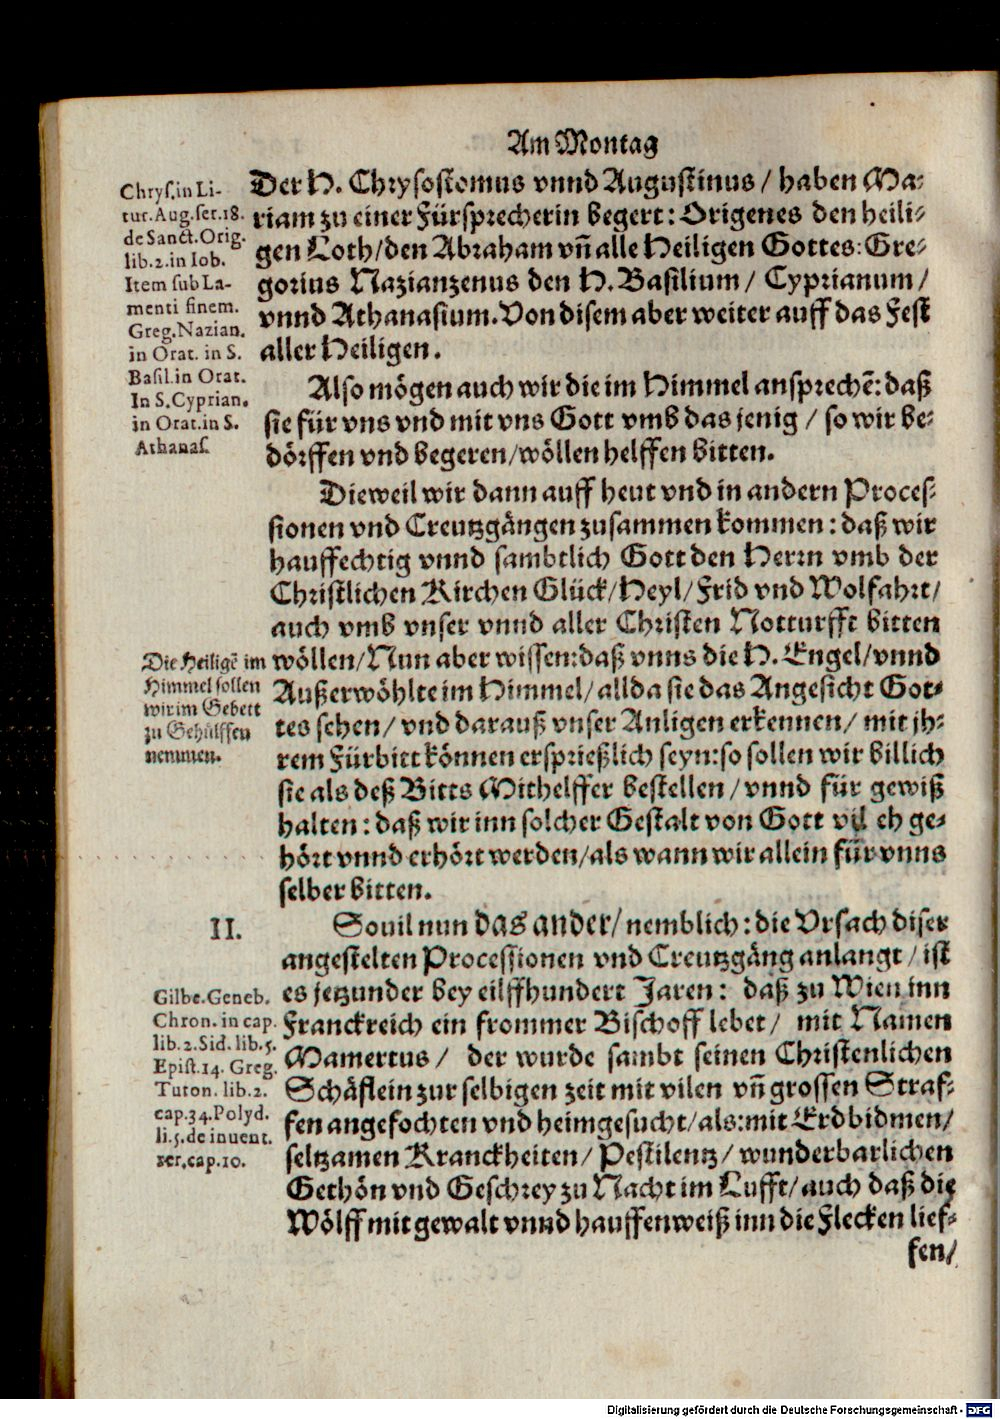 Am Montag
Chrys.in Li-
tur.Aug.ser.18.
de Sanct.Orig.
lib.2.in Iob.
Item sub La-
menti finem.
Greg.Nazian.
in Orat. in S.
Basil.in Orat.
In S.Cyprian.
in Orat.in S.
Athanas.
Der H. Chrysostomus vnnd Augustinus / haben Ma-
riam zu einer Fürsprecherin begert: Origenes den heili-
gen Loth/den Abraham vñ alle Heiligen Gottes: Gre-
gorius Nazianzenus den H.Basilium/ Cyprianum/
vnnd Athanasium.Von disem aber weiter auff das Fest
aller Heiligen.
Also mögen auch wir die im Himmel ansprechẽ: daß
sie für vns vnd mit vns Gott vmb das jenig / so wir be-
dörffen vnd begeren/wöllen helffen bitten.
Dieweil wir dann auff heut vnd in andern Proces-
sionen vnd Creutzgängen zusammen kommen: daß wir
hauffechtig vnnd sambtlich Gott den Herrn vmb der
Christlichen Kirchen Glück/Heyl/Frid vnd Wolfahrt/
auch vmb vnser vnnd aller Christen Notturfft bitten
Die Heiligẽ im
Himmel sollen
wir im Gebett
zu Gehülffen
nemmen.
wöllen/Nun aber wissen:daß vnns die H. Engel/vnnd
Außerwöhlte im Himmel/allda sie das Angesicht Got-
tes sehen/ vnd darauß vnser Anligen erkennen/ mit jh-
rem Fürbitt können ersprießlich seyn:so sollen wir billich
sie als deß Bitts Mithelffer bestellen/vnnd für gewiß
halten: daß wir inn solcher Gestalt von Gott vil eh ge-
hört vnnd erhört werden/als wann wir allein für vnns
selber bitten.
II.
Souil nun das ander/nemblich: die Vrsach diser
angestelten Processionen vnd Creutzgäng anlangt/ist
Gilbe.Geneb.
Chron. in cap.
lib.2.Sid.lib.5.
Epist.14. Greg.
Turon. lib.2.
cap.34.Polyd.
li.5.de inuent.
rer.cap.10.
es jetzunder bey eilffhundert Jaren: daß zu Wien inn
Franckreich ein frommer Bischoff lebet/ mit Namen
Mamertus/ der wurde sambt seinen Christenlichen
Schäflein zur selbigen zeit mit vilen vñ grossen Straf-
fen angefochten vnd heimgesucht/als:mit Erdbidmen/
seltzamen Kranckheiten/ Pestilentz/ wunderbarlichen
Gethön vnd Geschrey zu Nacht im Lufft/auch daß die
Wölff mit gewalt vnnd hauffenweiß inn die Flecken lief-
fen/
Digitalisierung gefördert durch die Deutsche Forschungsgemeinschaft - DFG